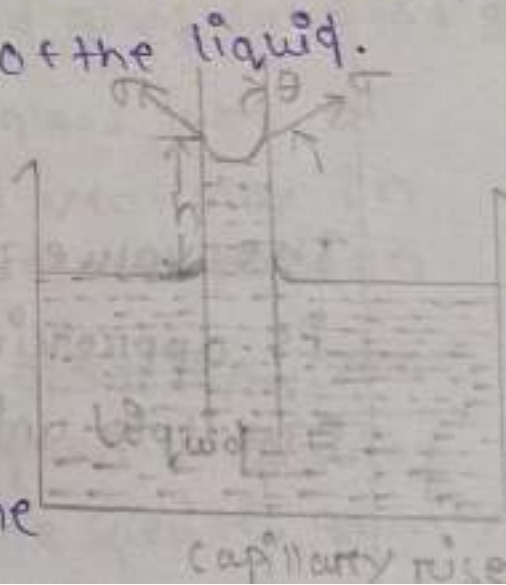 of the liquid.
σ θ σ
h
Liquid
Capillarity rise